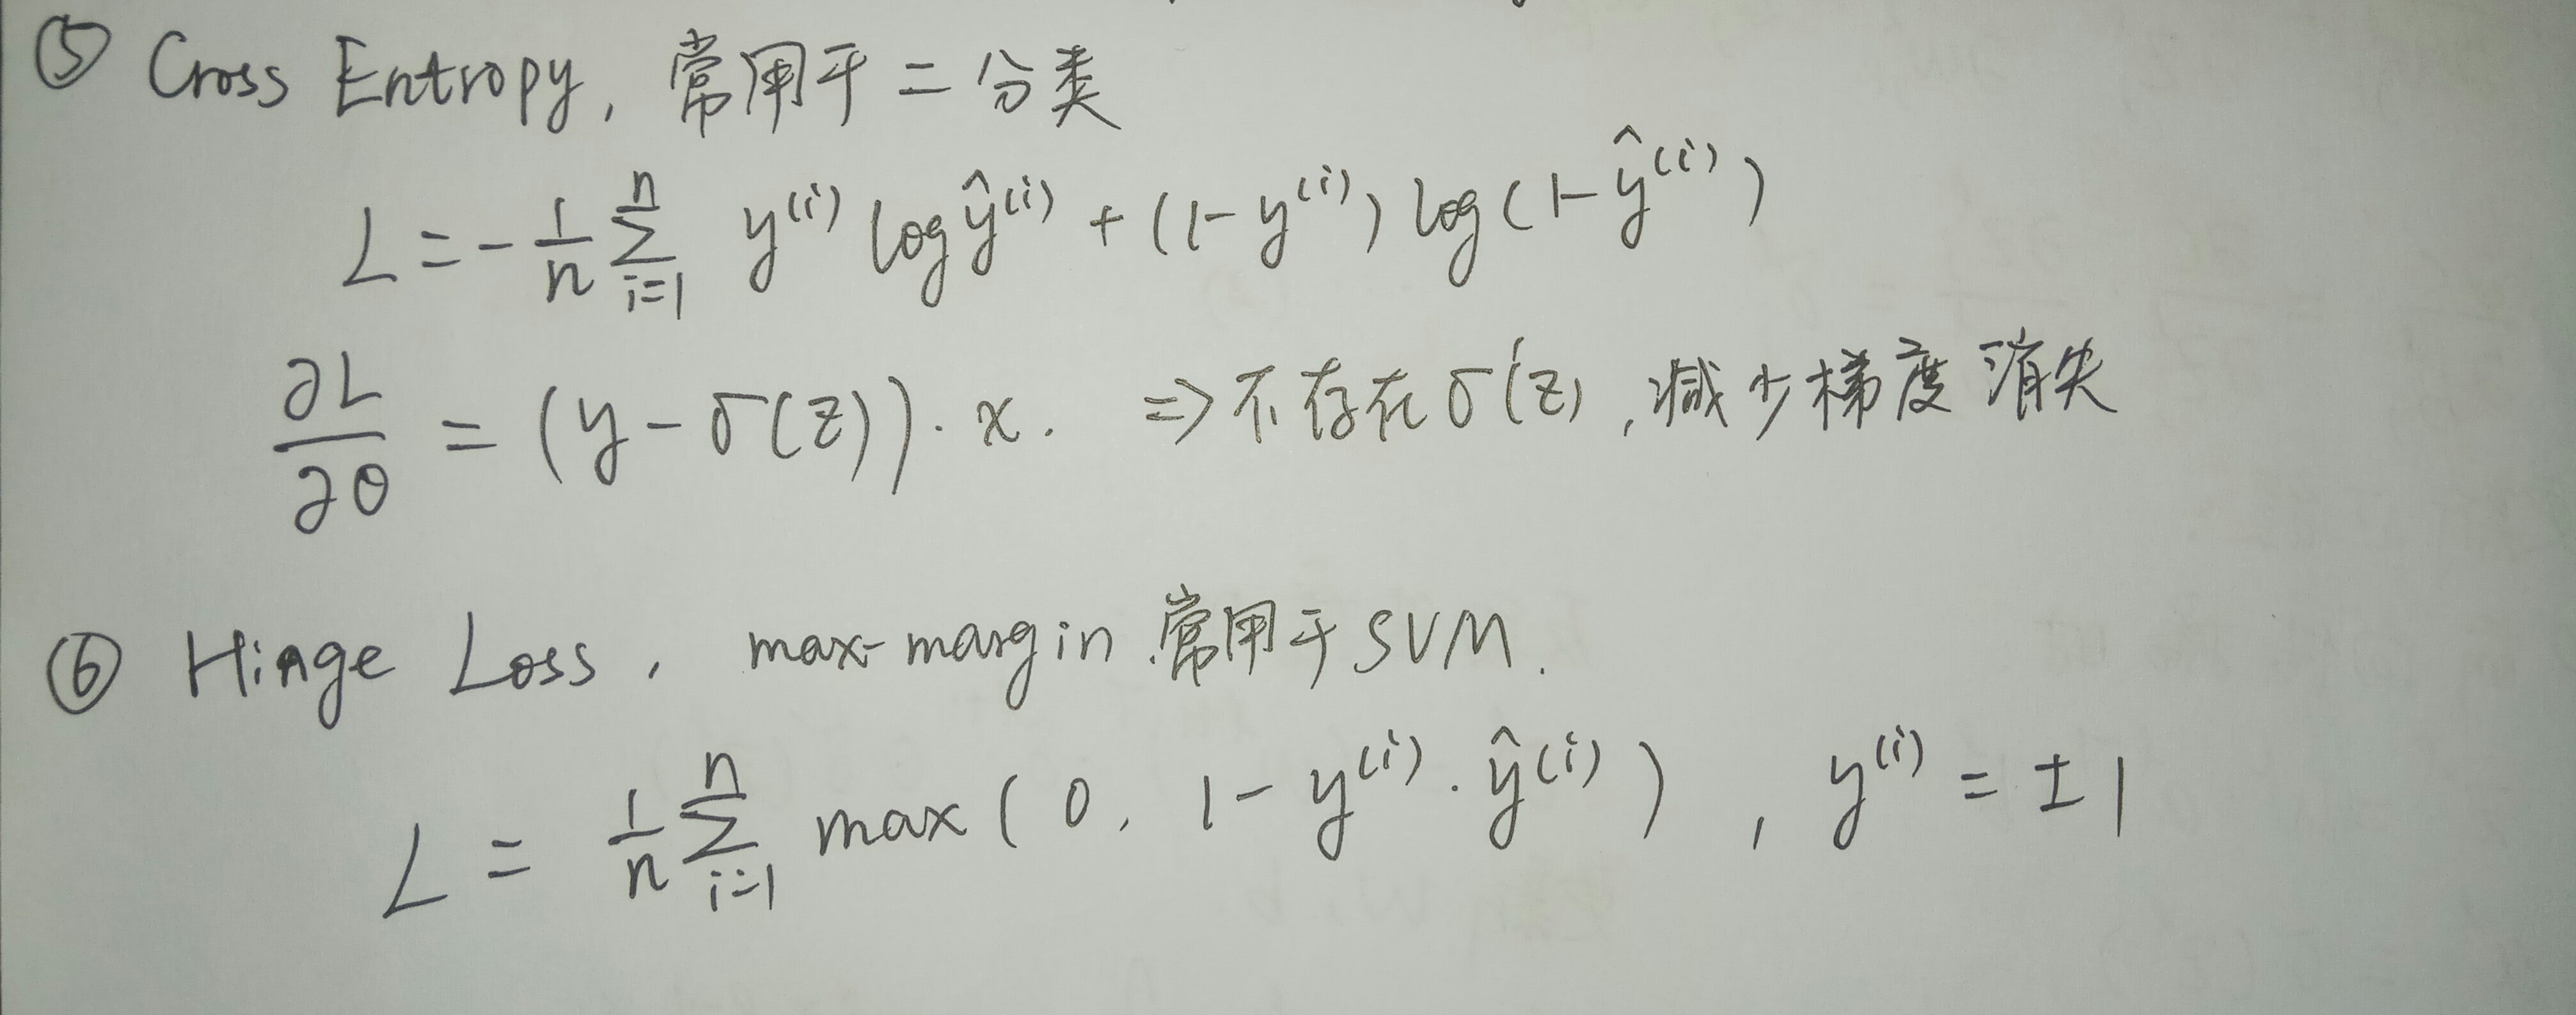 ⑤ Cross Entropy, 常用于二分类
L = - 1/n ∑_{i=1}^{n} y^{(i)} log ŷ^{(i)} + (1-y^{(i)}) log(1-ŷ^{(i)})
∂L/∂θ = (y-σ(z))·x. ⇒ 不存在σ'(z), 减少梯度消失
⑥ Hinge Loss, max-margin 常用于SVM.
L = 1/n ∑_{i=1}^{n} max(0, 1-y^{(i)}·ŷ^{(i)}), y^{(i)} = ±1